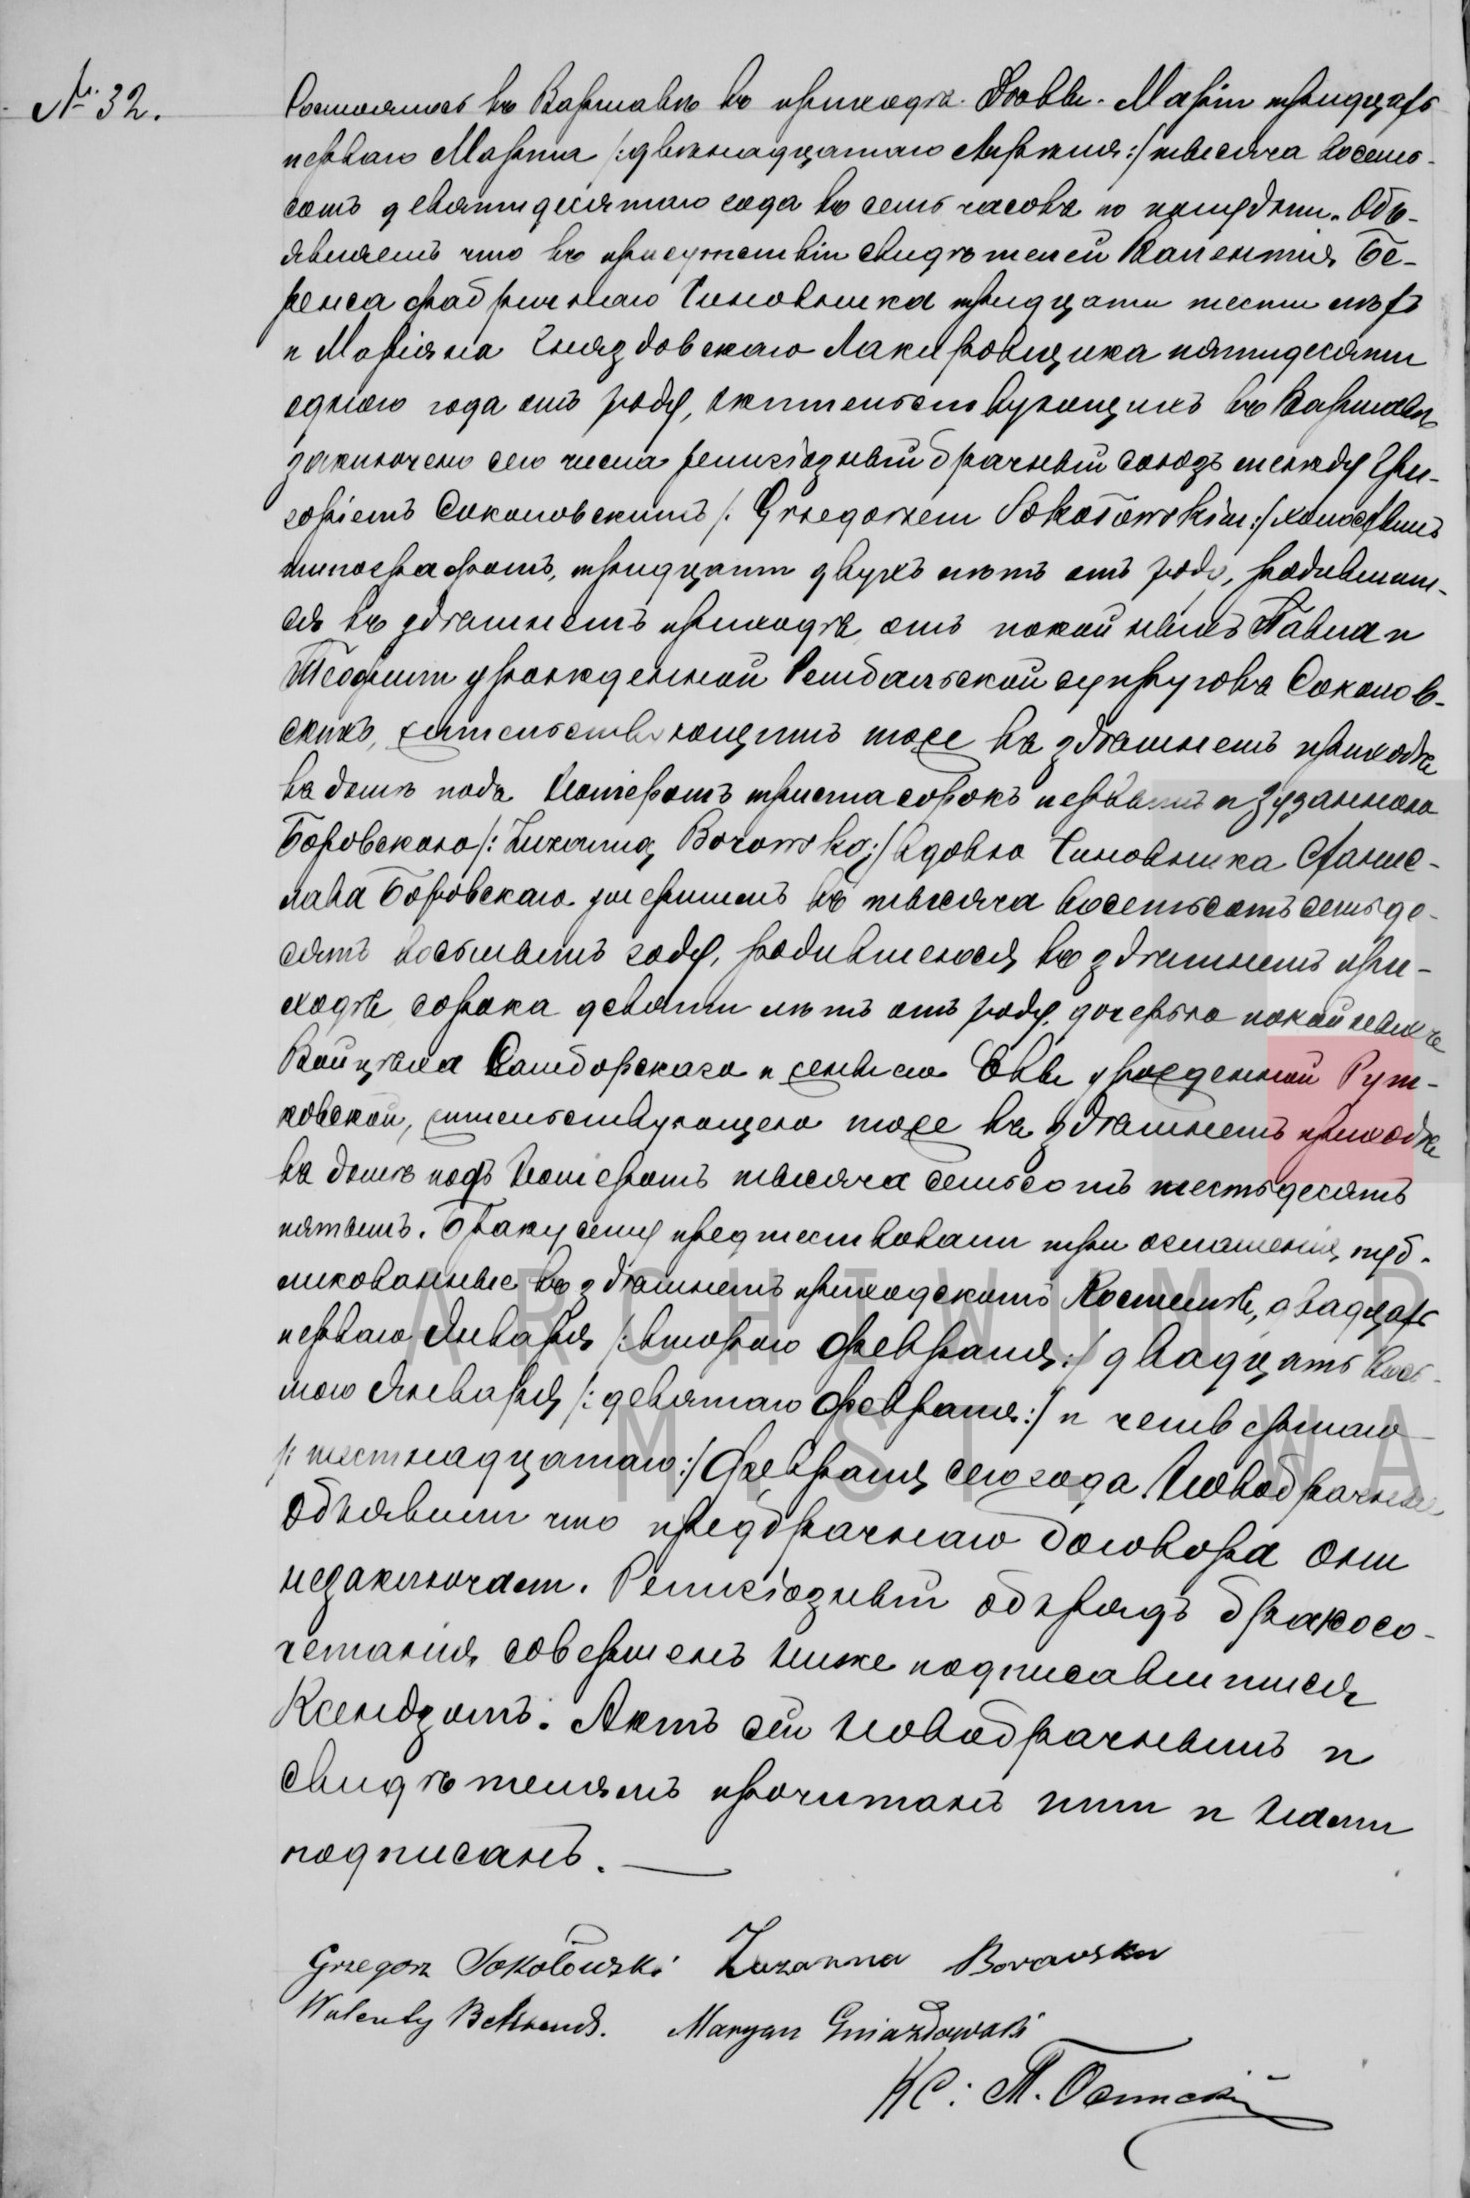 № 32.
Состоялось въ Варшавѣ въ приходѣ Дѣвы Маріи тридцать
перваго Марта /:двѣнадцатаго Апрѣля:/ тысяча восемь-
сотъ девятидесятаго года въ семь часовъ по полудни. Объ-
являемъ что въ присутствіи свидѣтелей Валентія Бе-
ренса фабричнаго Чиновника тридцати шести лѣтъ
и Маріяна Гняздовскаго Лакировщика пятидесяти
одного года отъ роду, жительствующихъ въ Варшавѣ
заключено сего числа религіозный брачный союзъ между Гри-
горіемъ Соколовскимъ /: Grzegorzem Sokołowskim:/ холостымъ
типографомъ, тридцати двухъ лѣтъ отъ роду, родившим-
ся въ здѣшнемъ приходѣ отъ покойныхъ Павла и
Теофили урожденной супруговъ Соколов-
скихъ, жительствующимъ тоже въ здѣшнемъ приходѣ
въ домѣ подъ Номеромъ триста сорокъ первымъ и Зузанною
Боровскою /: Zuzanną Borowską:/ вдовою Чиновника Станис-
лава Боровскаго умершимъ въ тысяча восемьсотъ семьде-
сятъ восьмымъ году, родившеюся въ здѣшнемъ при-
ходѣ сорока девяти лѣтъ отъ роду, дочерью покойныхъ
Войцѣха Самборскаго и жены его Евы урожденной Рут-
ковской, жительствующею тоже въ здѣшнемъ приходѣ
въ домѣ подъ Номеромъ тысяча семьсотъ шестьдесятъ
пятымъ. Браку сему предшествовали три оглашенія, пуб-
ликованные въ здѣшнемъ приходскомъ Костелѣ, двадцать
перваго Января /:втораго Февраля:/ двадцать вось-
маго Января /:девятаго Февраля:/ и четвертаго
/:шестнадцатаго:/ Февраля сего года. Новобрачные
объявили что предбрачнаго договора они
незаключали. Религіозный обрядъ бракосо-
четанія совершенъ ниже подписавшимся
Ксендзомъ. Актъ сей Новобрачнымъ и
свидѣтелямъ прочитанъ ими и Нами
подписанъ.
Grzegorz Sokołowski Zuzanna Borowska
Walenty Maryan Gniazdowski
Кс: 
ARCHIWUM